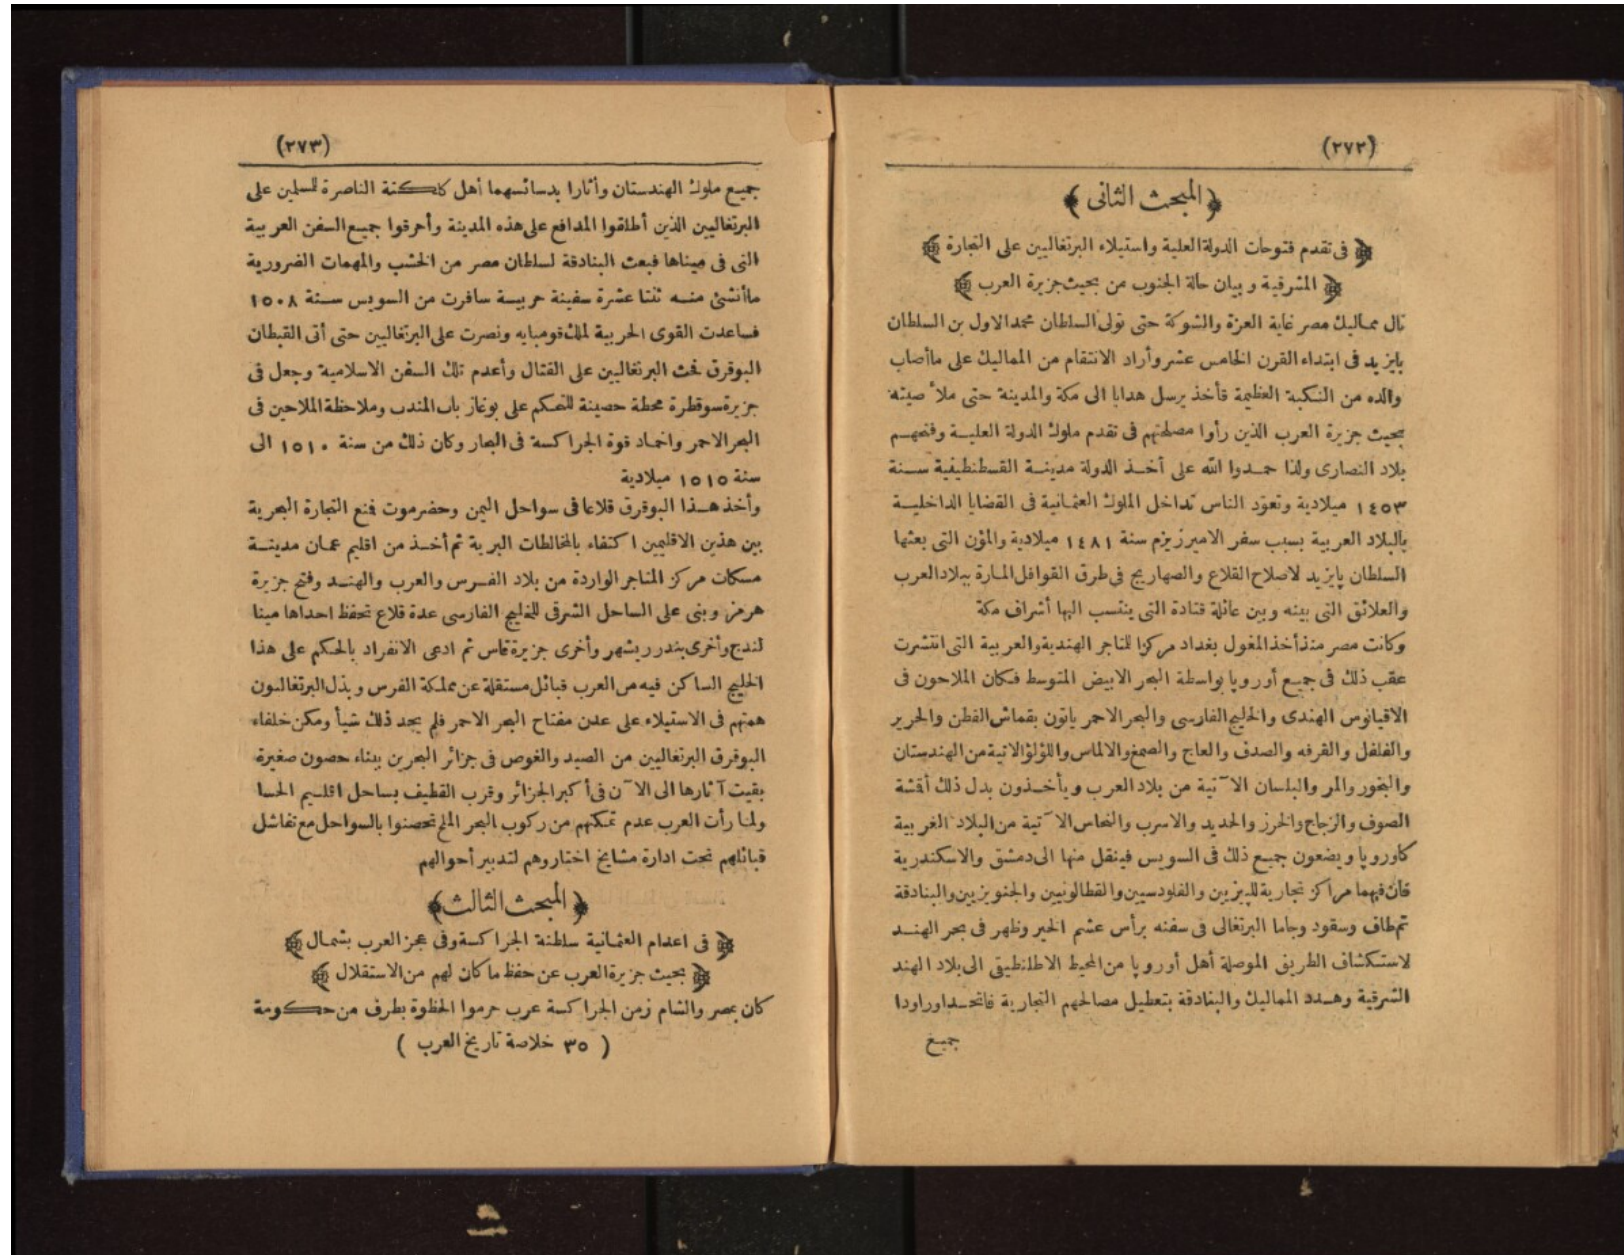 (٢٧٢)
﴿ المبحث الثانى ﴾
﴿ فى تقدم فتوحات الدولة العلية واستيلاء البرتغاليين على التجارة ﴾
﴿ المشرقية وبيان حالة الجنوب من بحيث جزيرة العرب ﴾
نال مماليك مصر غاية العزة والشوكة حتى تولى السلطان محمد الاول بن السلطان
بايزيد فى ابتداء القرن الخامس عشر وأراد الانتقام من المماليك على ماأصاب
والده من النكبة العظيمة فأخذ يرسل هدايا الى مكة والمدينة حتى ملأ صيته
بحيث جزيرة العرب الذين رأوا مصلحتهم فى تقدم ملوك الدولة العلية وفتحهم
بلاد النصارى ولذا حمدوا الله على أخذ الدولة مدينة القسطنطيفية سنة
١٤٥٣ ميلادية وتعود الناس تداخل الملوك العثمانية فى القضايا الداخلية
بالبلاد العربية بسبب سفر الاميرزيزم سنة ١٤٨١ ميلادية والمؤن التى بعثها
السلطان بايزيد لاصلاح القلاع والصهاريج فى طرق القوافل المارة ببلاد العرب
والعلائق التى بينه وبين عائلة قتادة التى ينتسب اليها أشراف مكة
وكانت مصر منذ أخذ المغول بغداد مركزا للمتاجر الهندية والعربية التى انتشرت
عقب ذلك فى جميع أوروپا بواسطة البحر الابيض المتوسط فكان الملاحون فى
الاقيانوس الهندى والخليج الفارسى والبحر الاحمر يأتون بقماش القطن والحرير
والفلفل والقرفه والصدف والعاج والصمغ والالماس واللؤلؤ الاتية من الهندستان
والبخور والمر والبلسان الآتية من بلاد العرب ويأخذون بدل ذلك أقشة
الصوف والزجاج والخرز والحديد والاسرب والنحاس الآتية من البلاد الغربية
كاوروپا ويضعون جميع ذلك فى السويس فينقل منها الى دمشق والاسكندرية
فان فيهما مراكز تجارية للپيزيين والفلودسيين والقطالونيين والجنويزيين والبنادقة
ثم طاف وسقود وجاما البرتغالى فى سفنه برأس عشم الخير وظهر فى بحر الهند
لاستكشاف الطريق الموصلة أهل أوروپا من المحيط الاطلنطيقى الى بلاد الهند
الشرقية وهدد المماليك والبنادقة بتعطيل مصالحهم التجارية فاتحدا وراودا
جميع
(٢٧٣)
جميع ملوك الهندستان وأثارا بدسائسهما أهل كلكتة الناصرة للمسلمين على
البرتغاليين الذين أطلقوا المدافع على هذه المدينة وأحرقوا جميع السفن العربية
التى فى ميناها فبعث البنادقة لسلطان مصر من الخشب والمهمات الضرورية
ماأنشئ منه ثنتا عشرة سفينة حربية سافرت من السويس سنة ١٥٠٨
فساعدت القوى الحربية لملك قومبايه ونصرت على البرتغاليين حتى أتى القبطان
البوقرق فحث البرتغاليين على القتال وأعدم تلك السفن الاسلامية وجعل فى
جزيرة سوقطرة محطة حصينة للتحكم على بوغاز باب المندب وملاحظة الملاحين فى
البحر الاحمر واخماد قوة الجراكسة فى البحار وكان ذلك من سنة ١٥١٠ الى
سنة ١٥١٥ ميلادية
وأخذ هذا البوقرق قلاعا فى سواحل اليمن وحضرموت فمنع التجارة البحرية
بين هذين الاقليمين اكتفاء بالمخالطات البرية ثم أخذ من اقليم عمان مدينة
مسكات مركز المتاجر الواردة من بلاد الفرس والعرب والهند وفتح جزيرة
هرمز وبنى على الساحل الشرقى للخليج الفارسى عدة قلاع تحفظ احداها مينا
لندج وأخرى بندر ريشهر وأخرى جزيرة قاس ثم ادعى الانفراد بالحكم على هذا
الخليج الساكن فيه من العرب قبائل مستقلة عن مملكة الفرس وبذل البرتغاليون
همتهم فى الاستيلاء على عدن مفتاح البحر الاحمر فلم يجد ذلك شيأ ومكن خلفاء
البوقرق البرتغاليين من الصيد والغوص فى جزائر البحرين ببناء حصون صغيرة
بقيت آثارها الى الآن فى أكبر الجزائر وقرب القطيف بساحل اقليم الحسا
ولما رأت العرب عدم تمكنهم من ركوب البحر الملح تحصنوا بالسواحل مع تفاشل
قبائلهم تحت ادارة مشايخ اختاروهم لتدبير أحوالهم
﴿ المبحث الثالث ﴾
﴿ فى اعدام العثمانية سلطنة الجراكسة وفى عجز العرب بشمال ﴾
﴿ بحيث جزيرة العرب عن حفظ ما كان لهم من الاستقلال ﴾
كان بمصر والشام زمن الجراكسة عرب حرموا الحظوة بطرف من حكومة
( ٣٥ خلاصة تاريخ العرب )